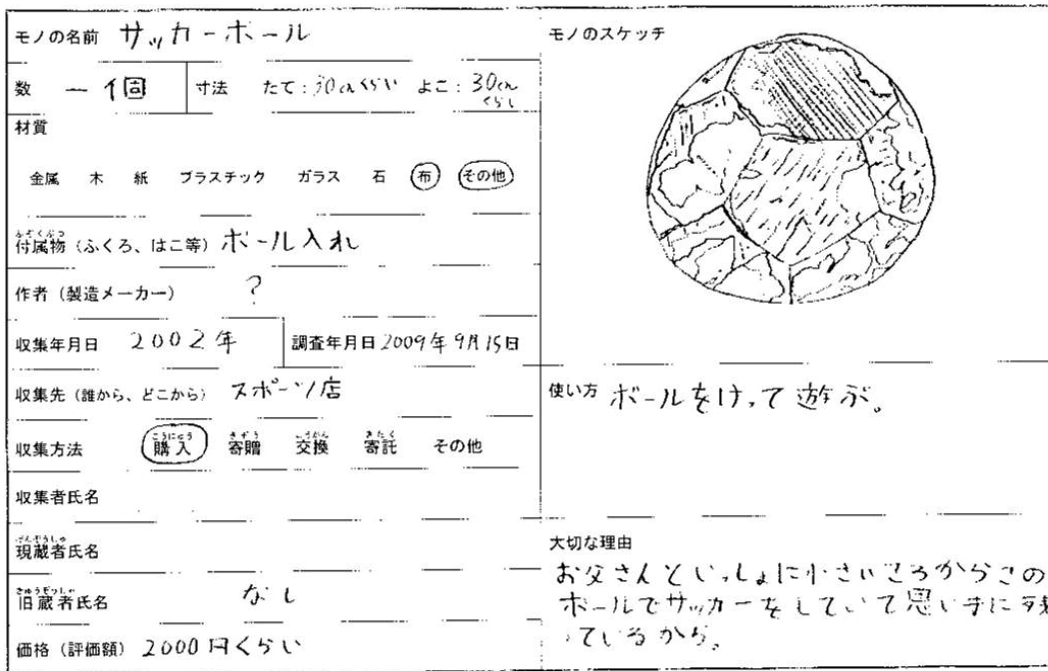 モノの名前 サッカーボール
数 一個 寸法 たて:30cmくらい よこ:30cmくらい
材質
金属 木 紙 プラスチック ガラス 石 布 その他
付属物(ふくろ、はこ等) ボール入れ
作者(製造メーカー) ?
収集年月日 2002年 調査年月日 2009年9月15日
収集先(誰から、どこから) スポーツ店
収集方法 購入 寄贈 交換 寄託 その他
収集者氏名
現蔵者氏名
旧蔵者氏名 なし
価格(評価額) 2000円くらい
モノのスケッチ
使い方 ボールをけって遊ぶ。
大切な理由
お父さんといっしょに小さいころからこの
ボールでサッカーをしていて思い出に残
っているから。